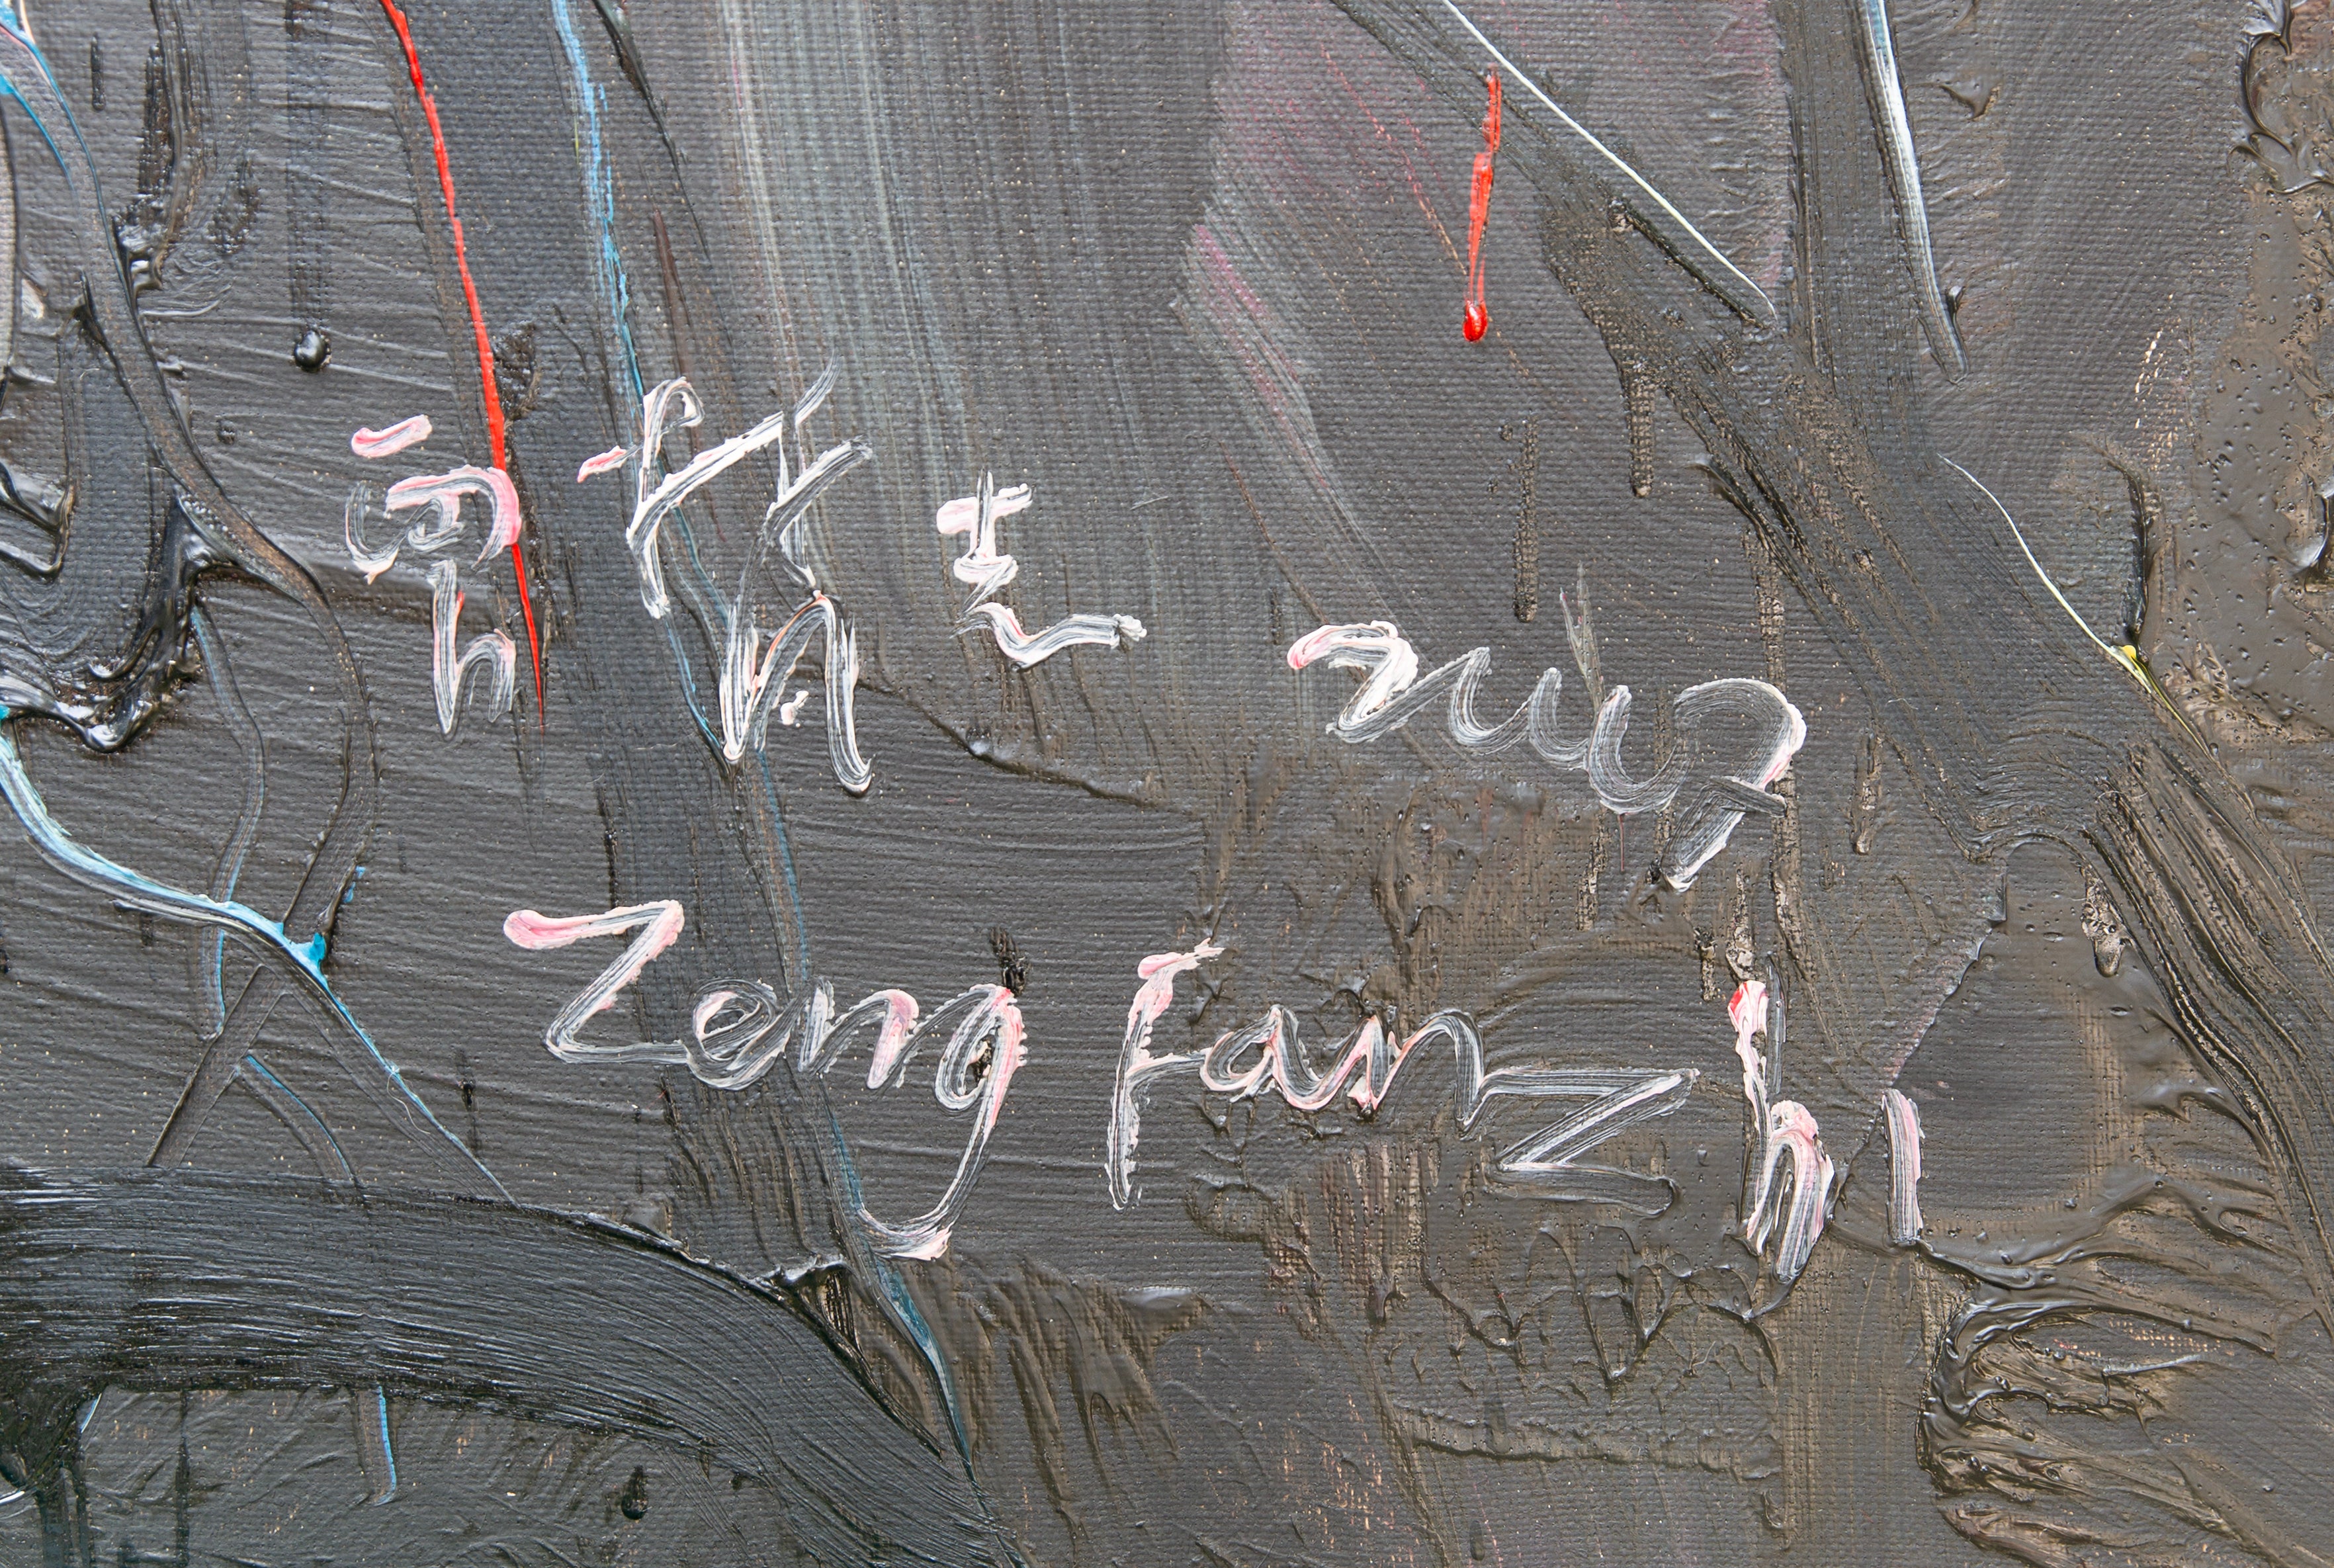 曾梵志 2007
Zeng Fanzhi